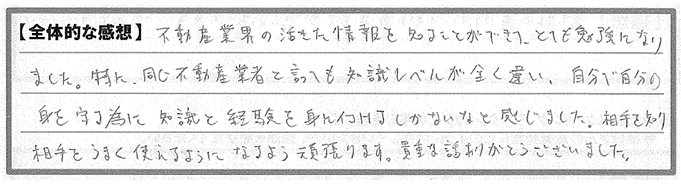 【全体的な感想】 不動産業界の活きた情報を知ることができて、とても勉強になり
ました。特に、同じ不動産業者と言っても知識レベルが全く違い、自分で自分の
身を守る為に知識と経験を身に付けるしかないなと感じました。相手を知り
相手をうまく使えるようになるよう頑張ります。貴重な話ありがとうございました。